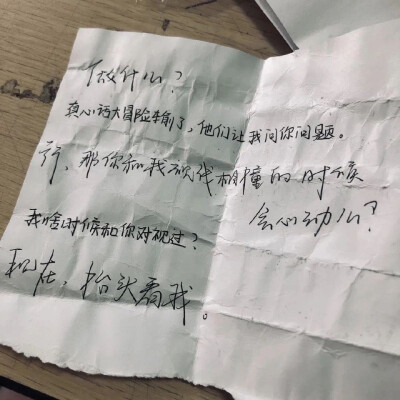 做什么？
真心话大冒险输了，他们让我问你问题。
行，那你和我视线相撞的时候
会心动么？
我啥时候和你对视过？
现在，抬头看我。